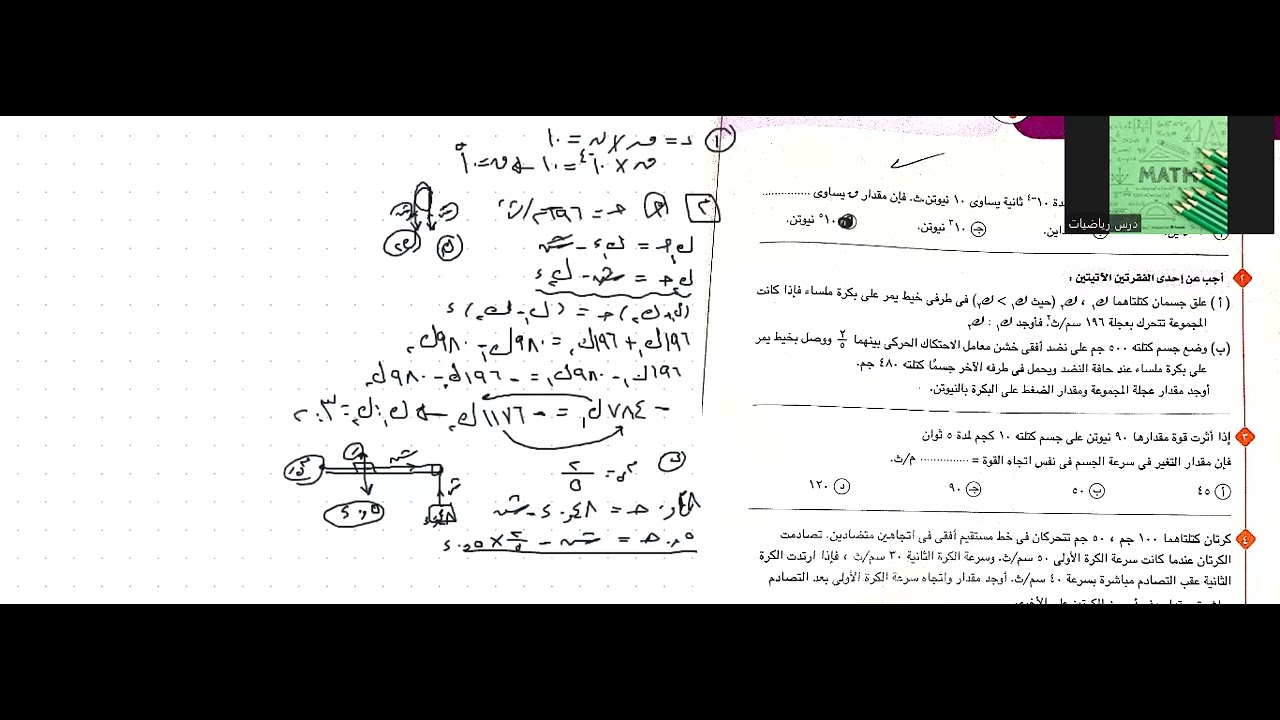 دة ١٠⁻⁴ ثانية يساوى ١٠ نيوتن.ث. فإن مقدار ن يساوى ..............
١٠° نيوتن.
ج ١٠³ نيوتن.
MATH
درس رياضيات
٢ أجب عن إحدى الفقرتين الآتيتين :
(أ) علق جسمان كتلتاهما ك١ ، ك٢ (حيث ك١ > ك٢) فى طرفى خيط يمر على بكرة ملساء فإذا كانت
المجموعة تتحرك بعجلة ١٩٦ سم/ث². فأوجد ك١ : ك٢
(ب) وضع جسم كتلته ٥٠٠ جم على نضد أفقى خشن معامل الاحتكاك الحركى بينهما ٢/٥ ووصل بخيط يمر
على بكرة ملساء عند حافة النضد ويحمل فى طرفه الآخر جسمًا كتلته ٤٨٠ جم.
أوجد مقدار عجلة المجموعة ومقدار الضغط على البكرة بالنيوتن.
٣ إذا أثرت قوة مقدارها ٩٠ نيوتن على جسم كتلته ١٠ كجم لمدة ٥ ثوان
فإن مقدار التغير فى سرعة الجسم فى نفس اتجاه القوة = .............. م/ث.
أ ٤٥ ب ٥٠ ج ٩٠ د ١٢٠
٤ كرتان كتلتاهما ١٠٠ جم ، ٥٠ جم تتحركان فى خط مستقيم أفقى فى اتجاهين متضادين. تصادمت
الكرتان عندما كانت سرعة الكرة الأولى ٥٠ سم/ث. وسرعة الكرة الثانية ٣٠ سم/ث ، فإذا ارتدت الكرة
الثانية عقب التصادم مباشرة بسرعة ٤٠ سم/ث. أوجد مقدار واتجاه سرعة الكرة الأولى بعد التصادم
١ د = ن × ن = ١٠
ن × ١٠⁻⁴ = ١٠ ← ن = ١٠⁵
٢ أ ح = ١٩٦ م/ث²
ك١ ح = ك١ ء - ش
ك٢ ح = ش - ك٢ ء
(ك١ + ك٢) ح = (ك١ - ك٢) ء
١٩٦ ك١ + ١٩٦ ك٢ = ٩٨٠ ك١ - ٩٨٠ ك٢
١٩٦ ك١ - ٩٨٠ ك١ = - ١٩٦ ك٢ - ٩٨٠ ك٢
- ٧٨٤ ك١ = - ١١٧٦ ك٢ ← ك١ : ك٢ = ٣ : ٢
ب م = ٢/٥
٠٫٤٨ ح = ٠٫٤٨ ء - ش
٠٫٥ ح = ش - ٢/٥ × ٠٫٥ ء